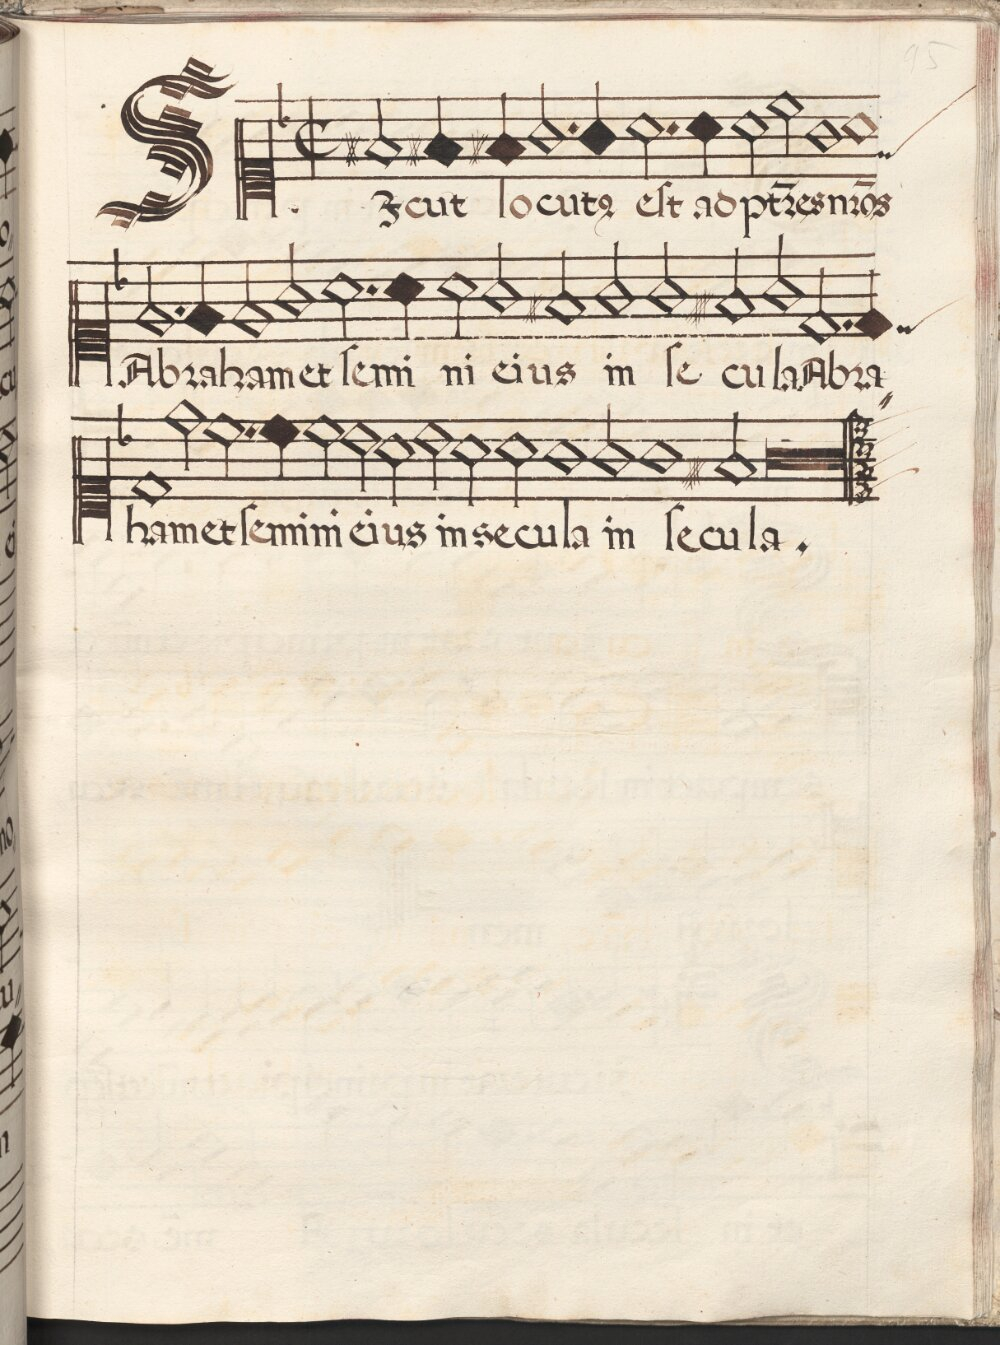 95
Sicut locutꝰ est ad ptr̃es nr̃os
Abraham et semini eius in secula Abra
ham et semini eius in secula in secula.